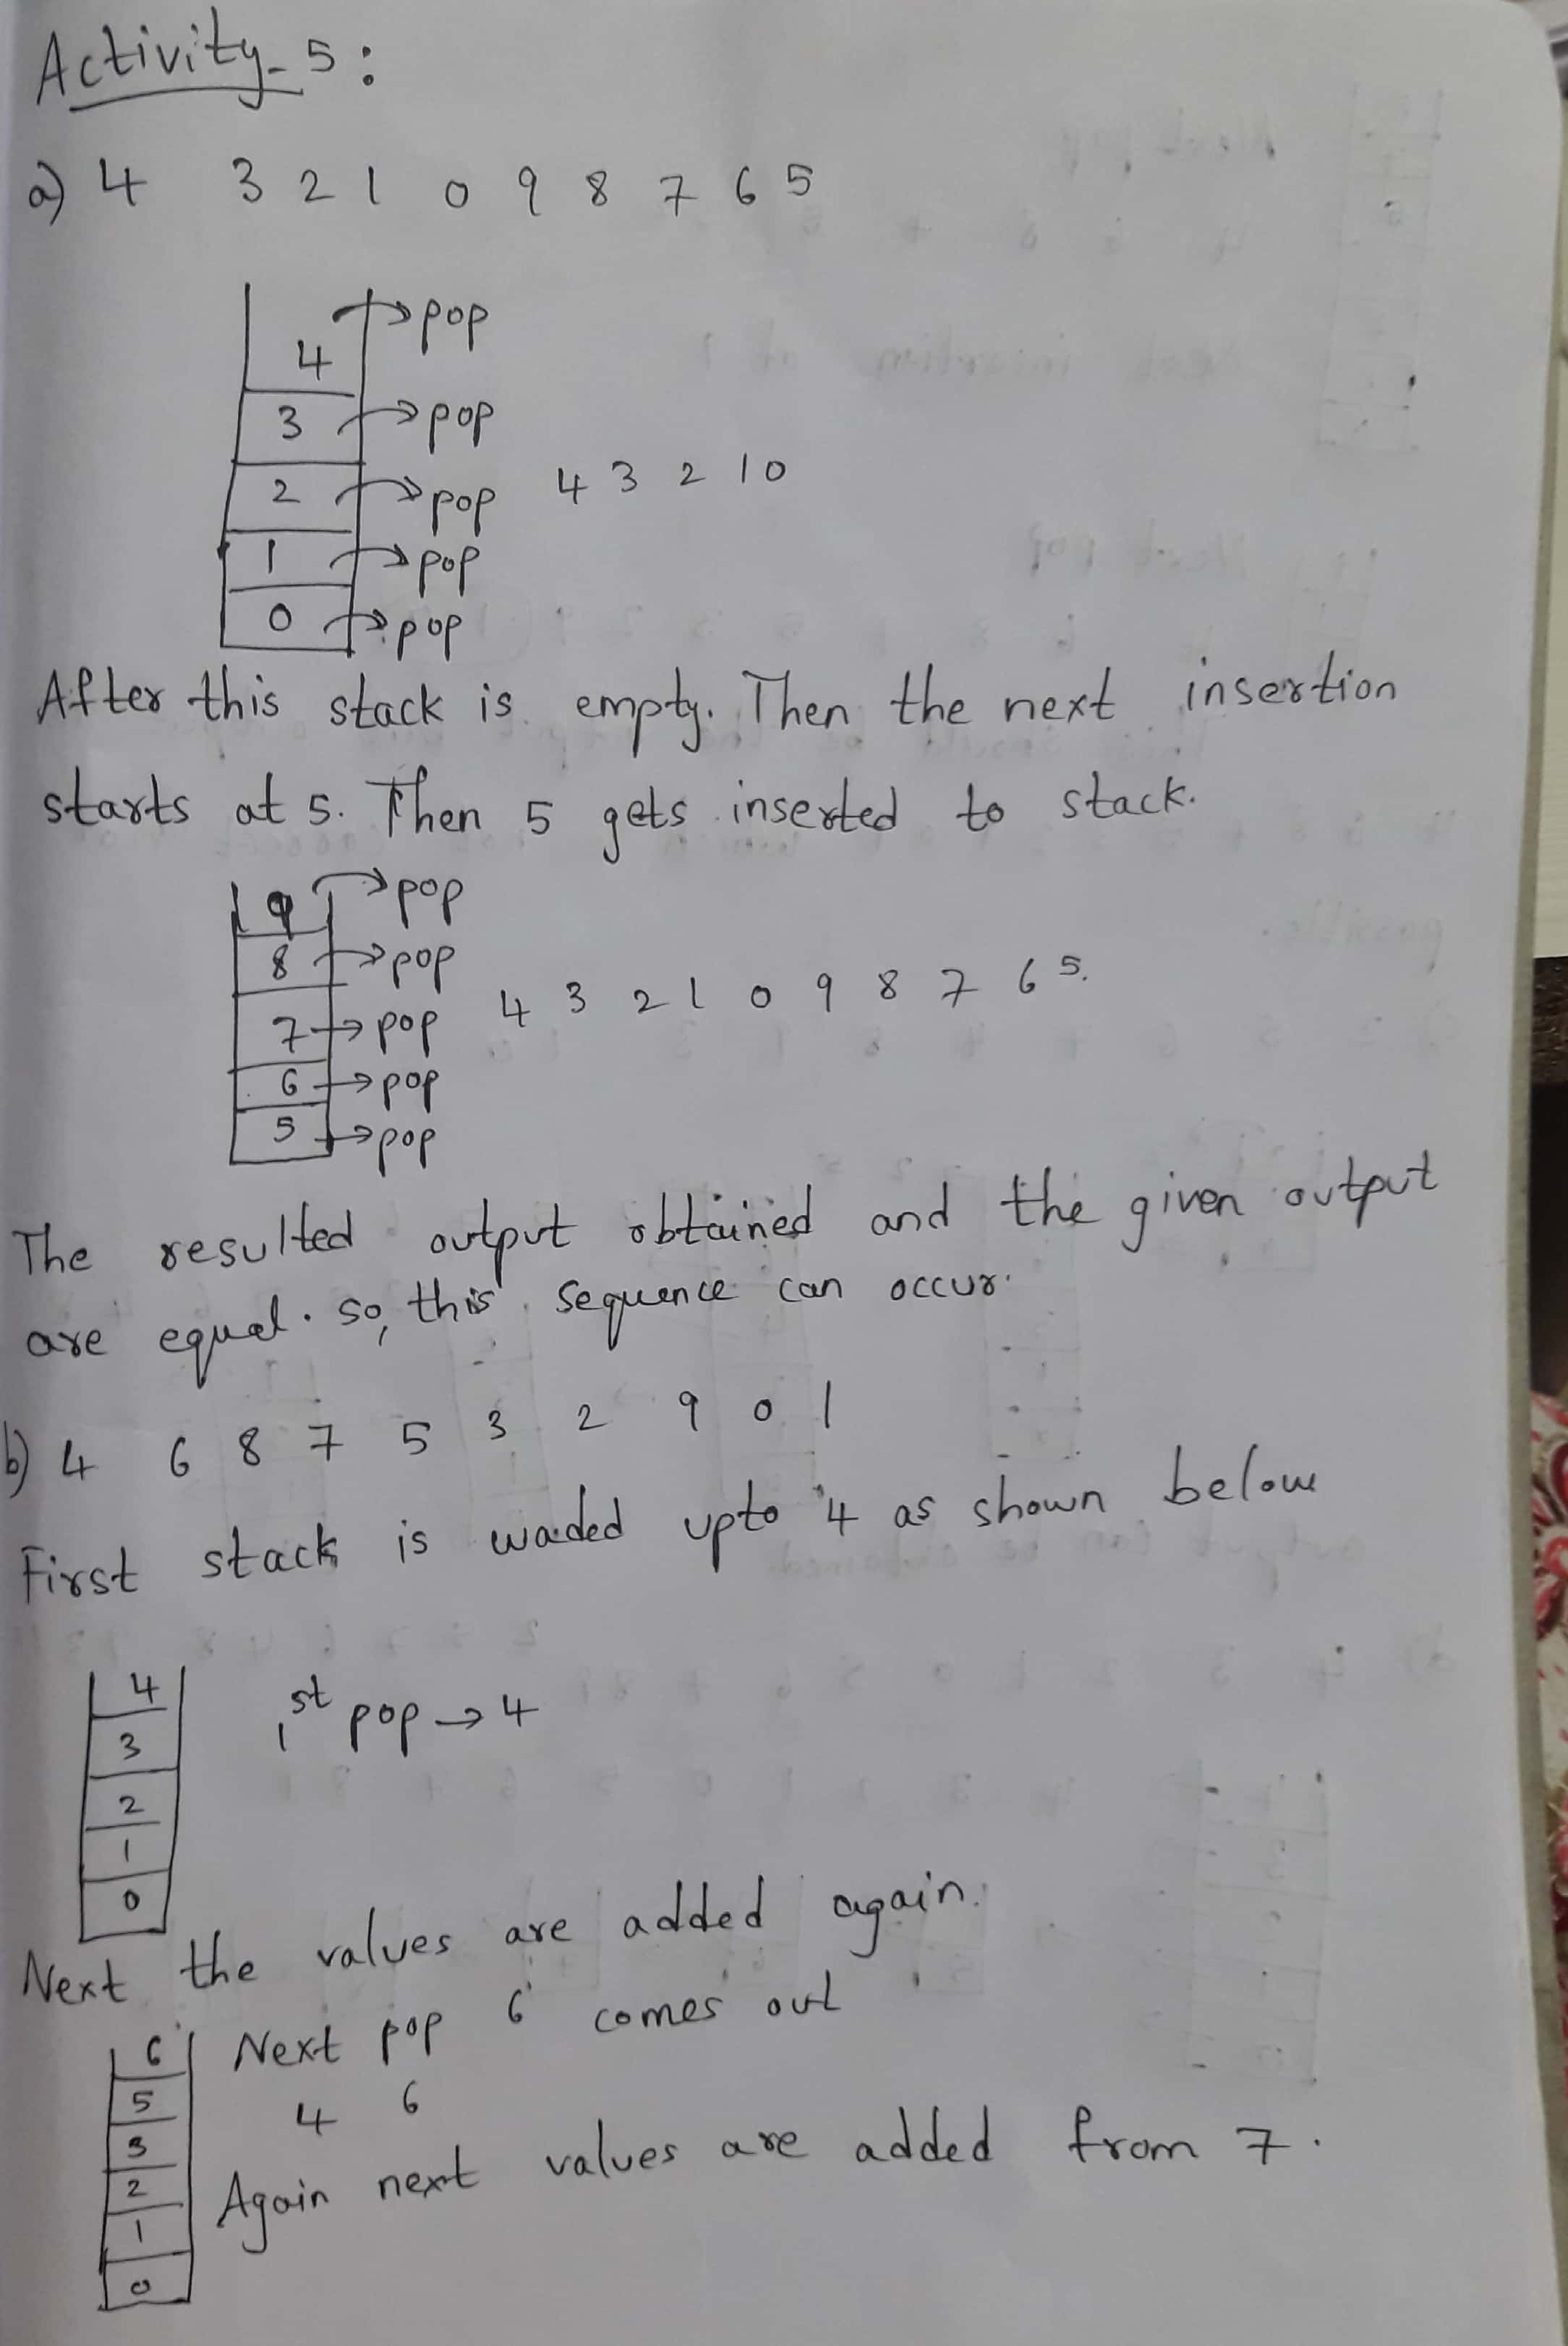 Activity-5:
a) 4 3 2 1 0 9 8 7 6 5
4 → pop
3 → pop
2 → pop 4 3 2 1 0
1 → pop
0 → pop
After this stack is empty. Then the next insertion
starts at 5. Then 5 gets inserted to stack.
9 → pop
8 → pop
7 → pop 4 3 2 1 0 9 8 7 6 5.
6 → pop
5 → pop
The resulted output obtained and the given output
are equal. so, this sequence can occur.
b) 4 6 8 7 5 3 2 9 0 1
First stack is waded upto 4 as shown below
4
3 1st pop → 4
2
1
0
Next the values are added again.
6 Next pop 6 comes out
5 4 6
3
2 Again next values are added from 7.
1
0